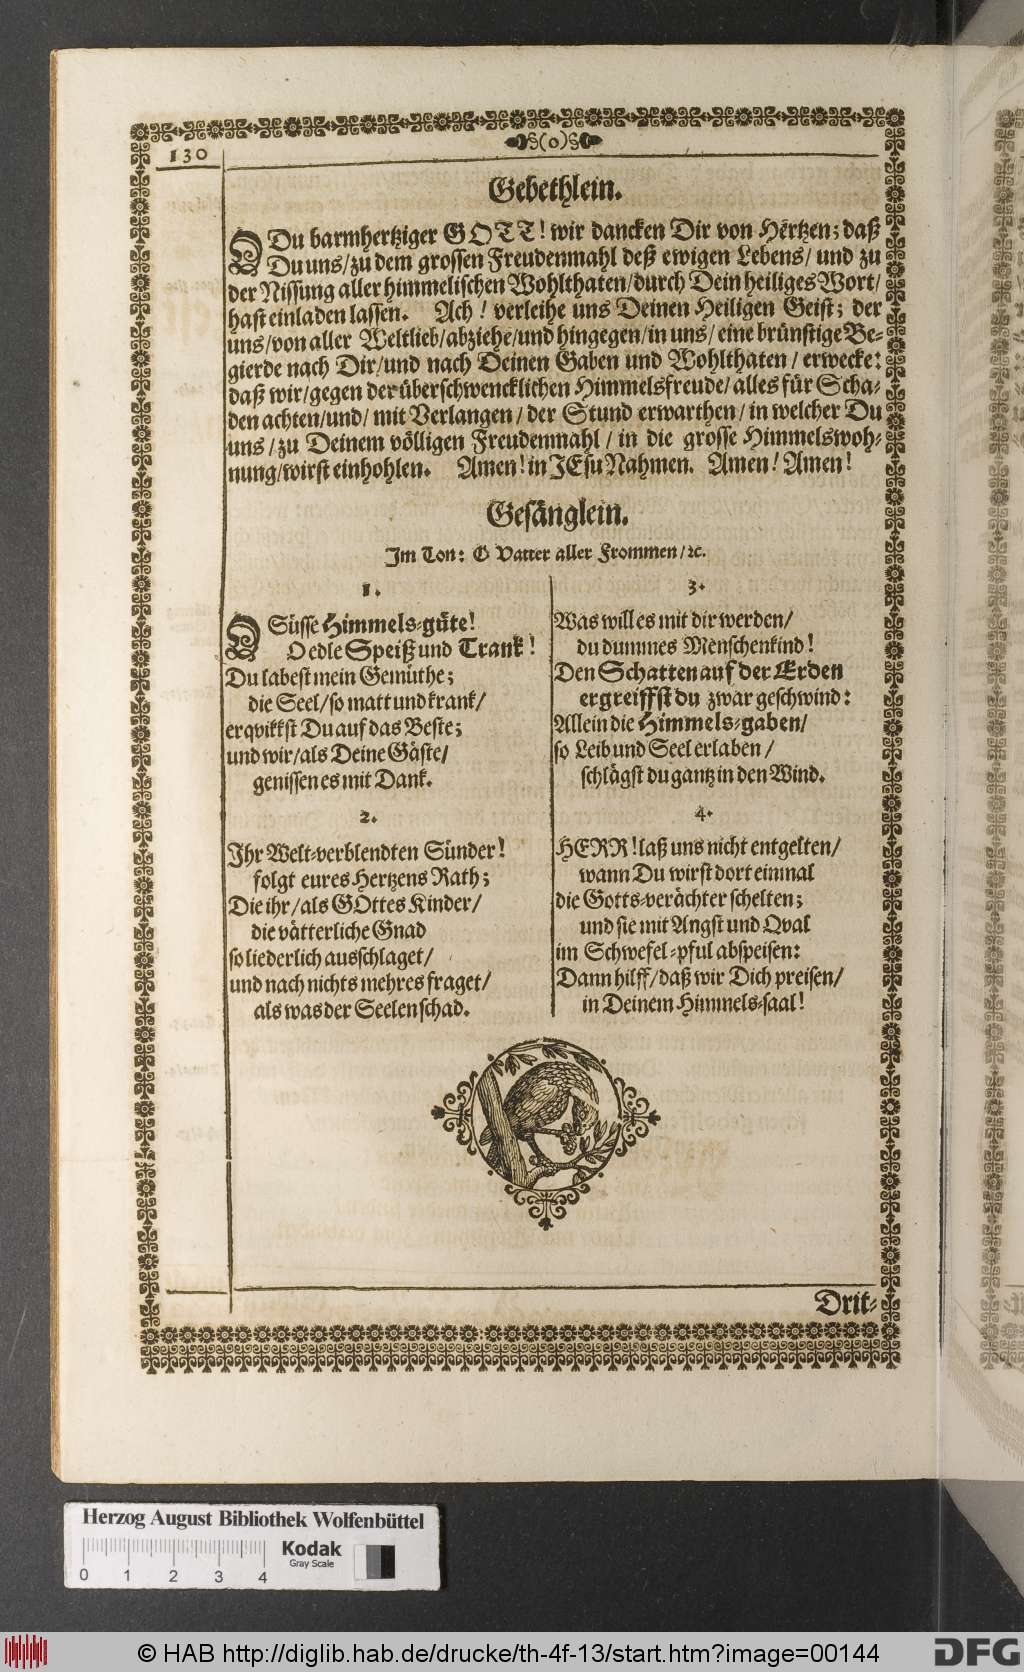 §(o)§
130
Gebethlein.
O Du barmhertziger GOTT! wir dancken Dir von Hertzen; daß
Du uns/ zu dem grossen Freudenmahl deß ewigen Lebens/ und zu
der Nissung aller himmelischen Wohlthaten/ durch Dein heiliges Wort/
hast einladen lassen. Ach! verleihe uns Deinen Heiligen Geist; der
uns/ von aller Weltlieb/ abziehe/ und hingegen/ in uns/ eine brünstige Be-
gierde nach Dir/ und nach Deinen Gaben und Wohlthaten/ erwecke:
daß wir/ gegen der überschwencklichen Himmelsfreude/ alles für Scha-
den achten/ und/ mit Verlangen/ der Stund erwarthen/ in welcher Du
uns/ zu Deinem völligen Freudenmahl/ in die grosse Himmelswoh-
nung/ wirst einhohlen. Amen! in JEsu Nahmen. Amen! Amen!
Gesänglein.
Im Ton: O Vatter aller Frommen/ ꝛc.
1.
O Süsse Himmels-güte!
O edle Speiß und Trank!
Du labest mein Gemüthe;
die Seel/ so matt und krank/
erqvikkst Du auf das Beste;
und wir/ als Deine Gäste/
geniessen es mit Dank.
2.
Ihr Welt-verblendten Sünder!
folgt eures Hertzens Rath;
Die ihr/ als GOttes Kinder/
die vätterliche Gnad
so liederlich ausschlaget/
und nach nichts mehres fraget/
als was der Seelen schad.
3.
Was will es mit dir werden/
du dummes Menschenkind!
Den Schatten auf der Erden
ergreiffst du zwar geschwind:
Allein die Himmels-gaben/
so Leib und Seel erlaben/
schlägst du gantz in den Wind.
4.
HERR! laß uns nicht entgelten/
wann Du wirst dort einmal
die Gotts-verächter schelten;
und sie mit Angst und Qval
im Schwefel-pful abspeisen:
Dann hilff/ daß wir Dich preisen/
in Deinem Himmels-saal!
Drit-
Herzog August Bibliothek Wolfenbüttel
Kodak
Gray Scale
0 1 2 3 4
© HAB http://diglib.hab.de/drucke/th-4f-13/start.htm?image=00144
DFG